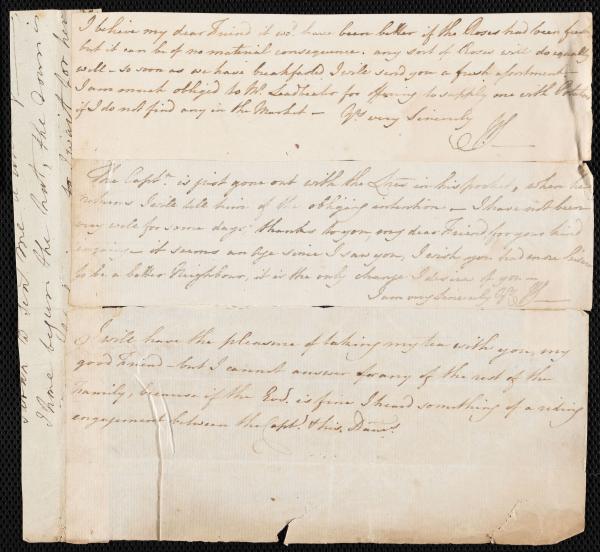 I believe my dear Friend it wod. have been better if the Roses had been fresh
but it can be of no material consequence. any sort of Roses will do equally
well - so soon as we have breakfasted I will send you a fresh
I am much obliged to Mr. Leadbeater for offering to supply me with
if I do not find any in the Market - Yrs. very Sincerely
The Captn. is just gone out with the Lines in his pocket, when he
returns I will tell him of the obliging intention - I have not been
very well for some days, thanks to you, my dear Friend for your kind
enquiry - it seems an Age since I saw you, I wish you had more Leisure
to be a better Neighbour, it is the only change I desire in you -
I am very Sincerely Yrs
I will have the pleasure of taking my tea with you, my
good Friend - but I cannot answer for any of the rest of the
Family, because if the Eve. is fine I heard something of a riding
engagement between the Captn. & his Dam's.
to send me a
I have begun the hat, the down is
to wait for her